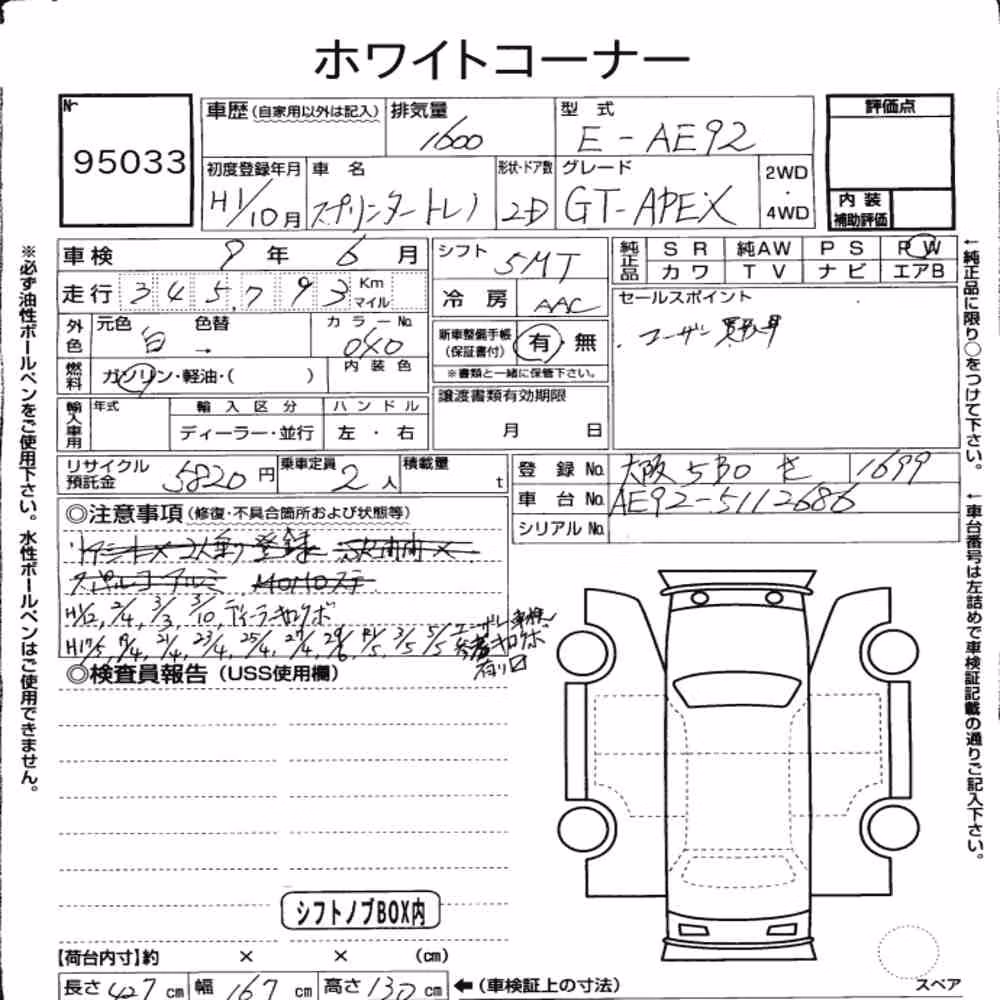 ホワイトコーナー
№ 95033
車歴(自家用以外は記入) 排気量 1600 型式 E-AE92 評価点
初度登録年月 H1/10月 車名 スプリンタートレノ 形状・ドア数 2D グレード GT-APEX 2WD・4WD
内装補助評価
車検 9年 6月 シフト 5MT 純正品 SR 純AW PS PW
カワ TV ナビ エアB
走行 345,793 Km マイル 冷房 AAC セールスポイント
外色 元色 白 色替 → カラーNo. 040 新車整備手帳(保証書付) 有・無
ユーザー買取車
燃料 ガソリン・軽油・( ) 内装色 ※書類と一緒に保管下さい。
輸入車用 年式 輸入区分 ハンドル 譲渡書類有効期限
ディーラー・並行 左・右 月 日
リサイクル預託金 5820円 乗車定員 2人 積載量 t 登録No. 大阪 530 せ 1699
車台No. AE92-5112686
シリアルNo.
◎注意事項(修復・不具合箇所および状態等)
2人乗り登録
アルミ MOMOステ
H1/12, 2/4, 3/3, 3/10, ディーラーキロクボ
有り
◎検査員報告(USS使用欄)
シフトノブBOX内
【荷台内寸】約 × × (cm)
長さ 427 cm 幅 167 cm 高さ 130 cm ←(車検証上の寸法)
スペア
※必ず油性ボールペンをご使用下さい。水性ボールペンはご使用できません。
←純正品に限り○をつけて下さい。
←車台番号は左詰めで車検証記載の通りご記入下さい。